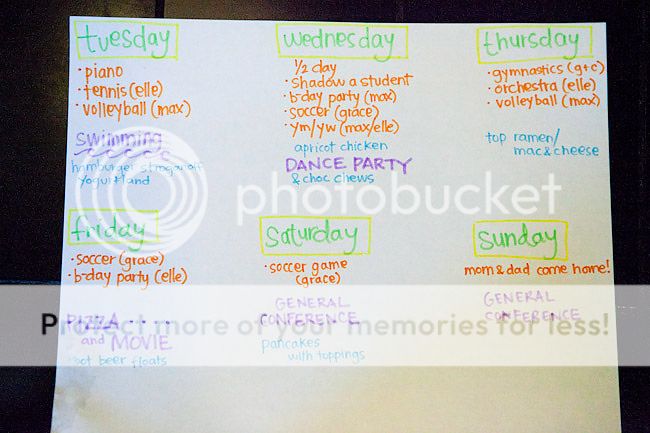 tuesday
• piano
• tennis (elle)
• volleyball (max)
swimming
hamburger stroganoff
yogurtland
wednesday
1/2 day
• shadow a student
• b-day party (max)
• soccer (grace)
• ym/yw (max/elle)
apricot chicken
DANCE PARTY
& choc chews
thursday
• gymnastics (g+c)
• orchestra (elle)
• volleyball (max)
top ramen/
mac & cheese
friday
• soccer (grace)
• b-day party (elle)
PIZZA
and MOVIE
root beer floats
saturday
• soccer game
(grace)
GENERAL
CONFERENCE
pancakes
with toppings
sunday
mom & dad come home!
GENERAL
CONFERENCE
photobucket
Protect more of your memories for less!